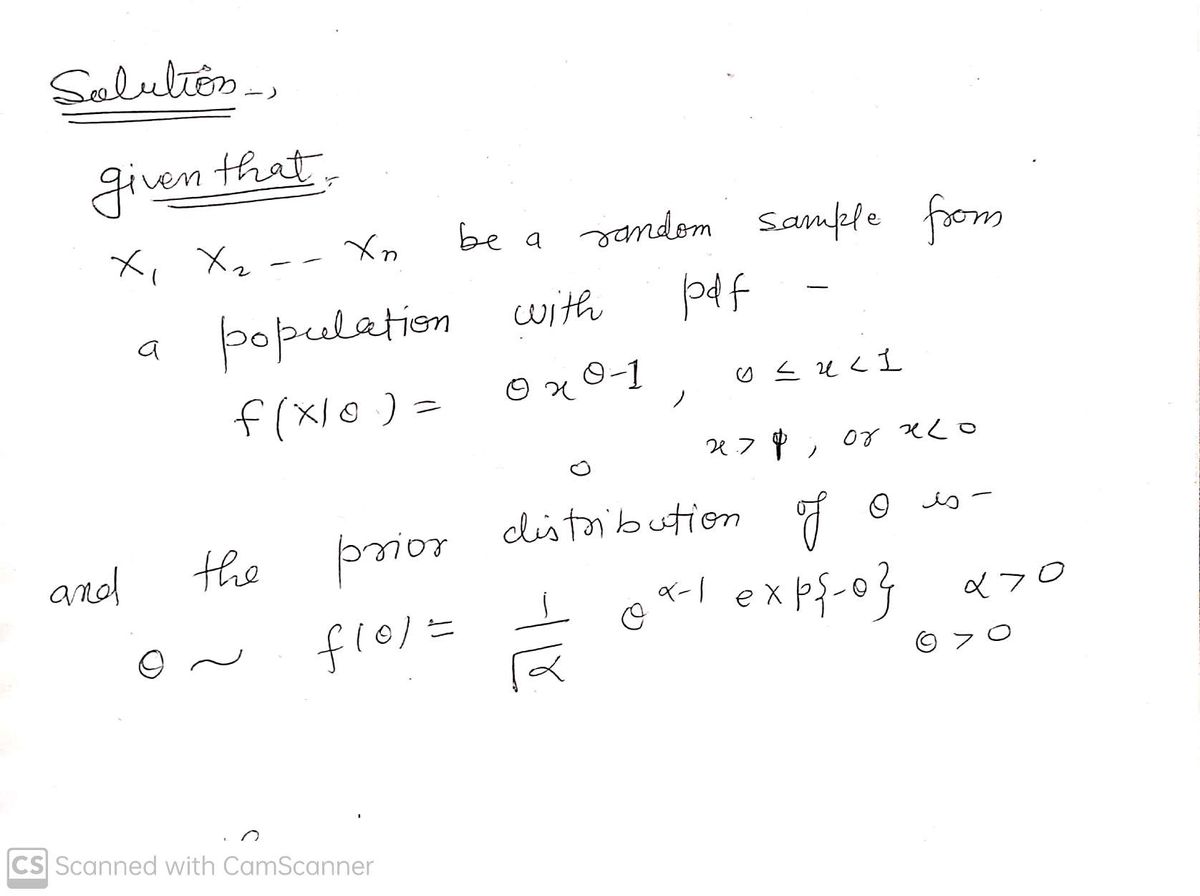 Solution -,
given that,-
X₁ X₂ -- Xn be a random sample from
a population with pdf -
f(x|θ) = θ x^θ-1 , 0 ≤ x < 1
0 x > 1, or x < 0
and the prior distribution of θ is -
θ ~ f(θ) = 1/Γα θ^α-1 exp{-θ} α > 0
θ > 0
CS Scanned with CamScanner